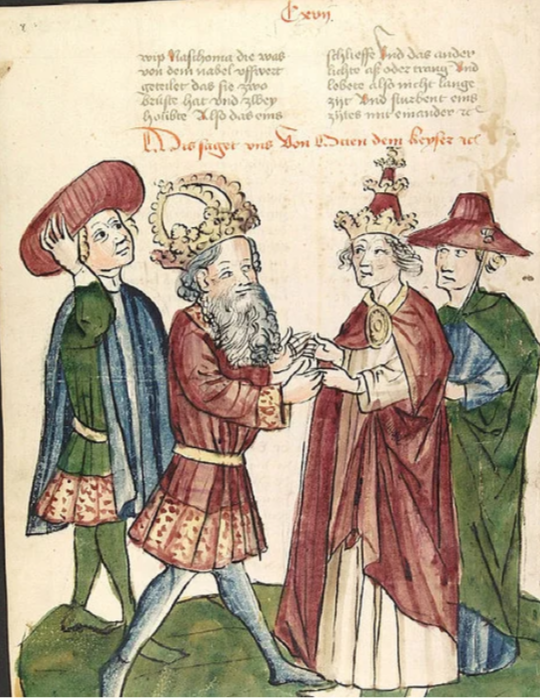 Cxvij.
wip die was
von dem nabel vffwert
geteilet das sie zwo
brüste hat vnd zwey
höubte Also das eins
schlieffe Vnd das ander
aß oder Vnd
lebete also nicht lange
zijt Vnd sturbent eins
zijtes mit einander ꝛc
Dis saget vns Von dem keyser ꝛc